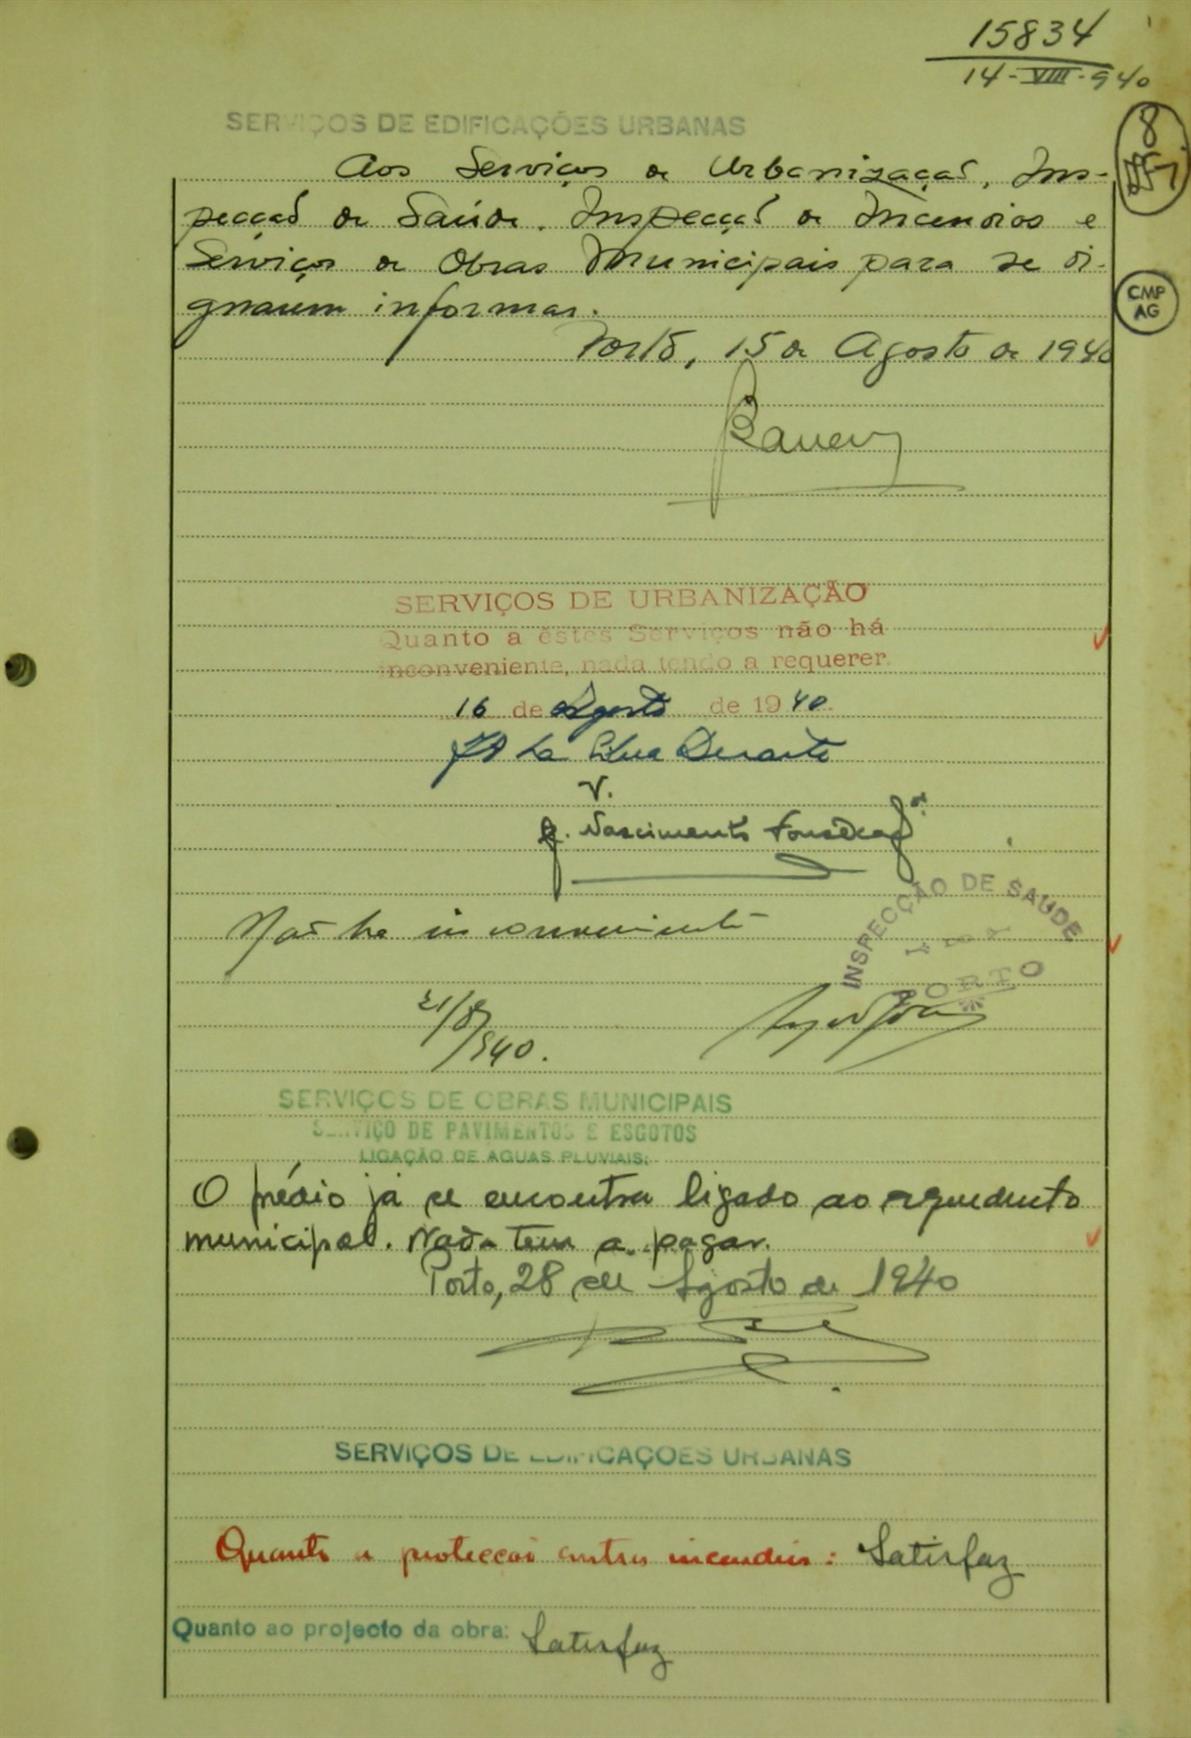 15834
14-VIII-940
8
SERVIÇOS DE EDIFICAÇÕES URBANAS
Aos Serviços de Urbanização, Ins-
pecção de Saúde, Inspecção de Incendios e
Serviços de Obras Municipais para se di-
gnarem informar.
CMP
AG
Porto, 15 de Agosto de 1940
SERVIÇOS DE URBANIZAÇÃO
Quanto a êstes Serviços não há
inconveniente, nada tendo a requerer.
16 de Agosto de 1940.
da Silva Duarte
V.
Nascimento Fonseca
INSPECÇÃO DE SAUDE
PORTO
Não ha inconveniente
21/8/940.
SERVIÇOS DE OBRAS MUNICIPAIS
SERVIÇO DE PAVIMENTOS E ESGOTOS
LIGAÇÃO DE AGUAS PLUVIAIS:
O prédio já se encontra ligado ao aqueducto
municipal. Nada tem a pagar.
Porto, 28 de Agosto de 1940
SERVIÇOS DE EDIFICAÇÕES URBANAS
Quanto a protecção contra incendios: Satisfaz
Quanto ao projecto da obra: Satisfaz